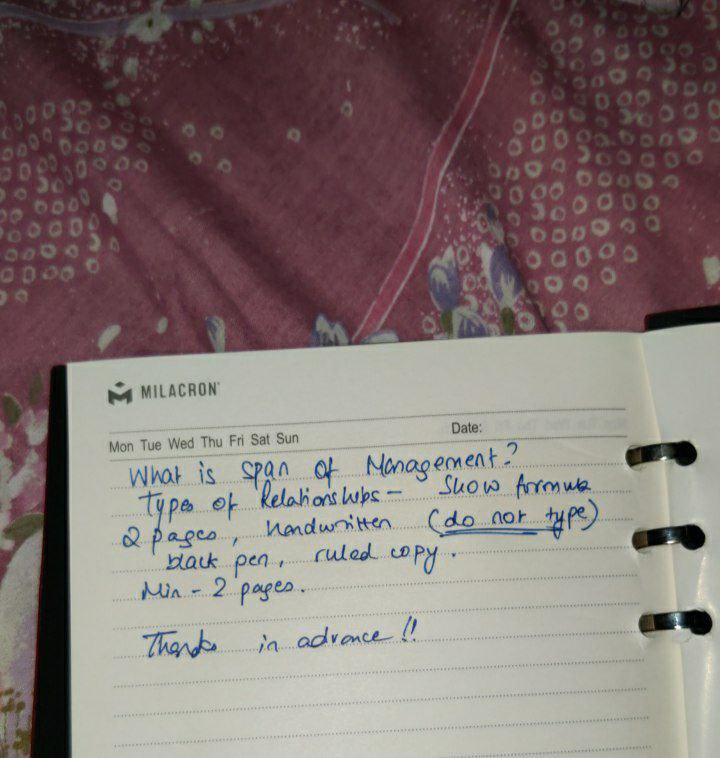 MILACRON
Mon Tue Wed Thu Fri Sat Sun Date:
What is span of Management?
Types of Relationships - Show formula
2 pages, Handwritten (do not type)
black pen, ruled copy.
Min - 2 pages.
Thanks in advance !!